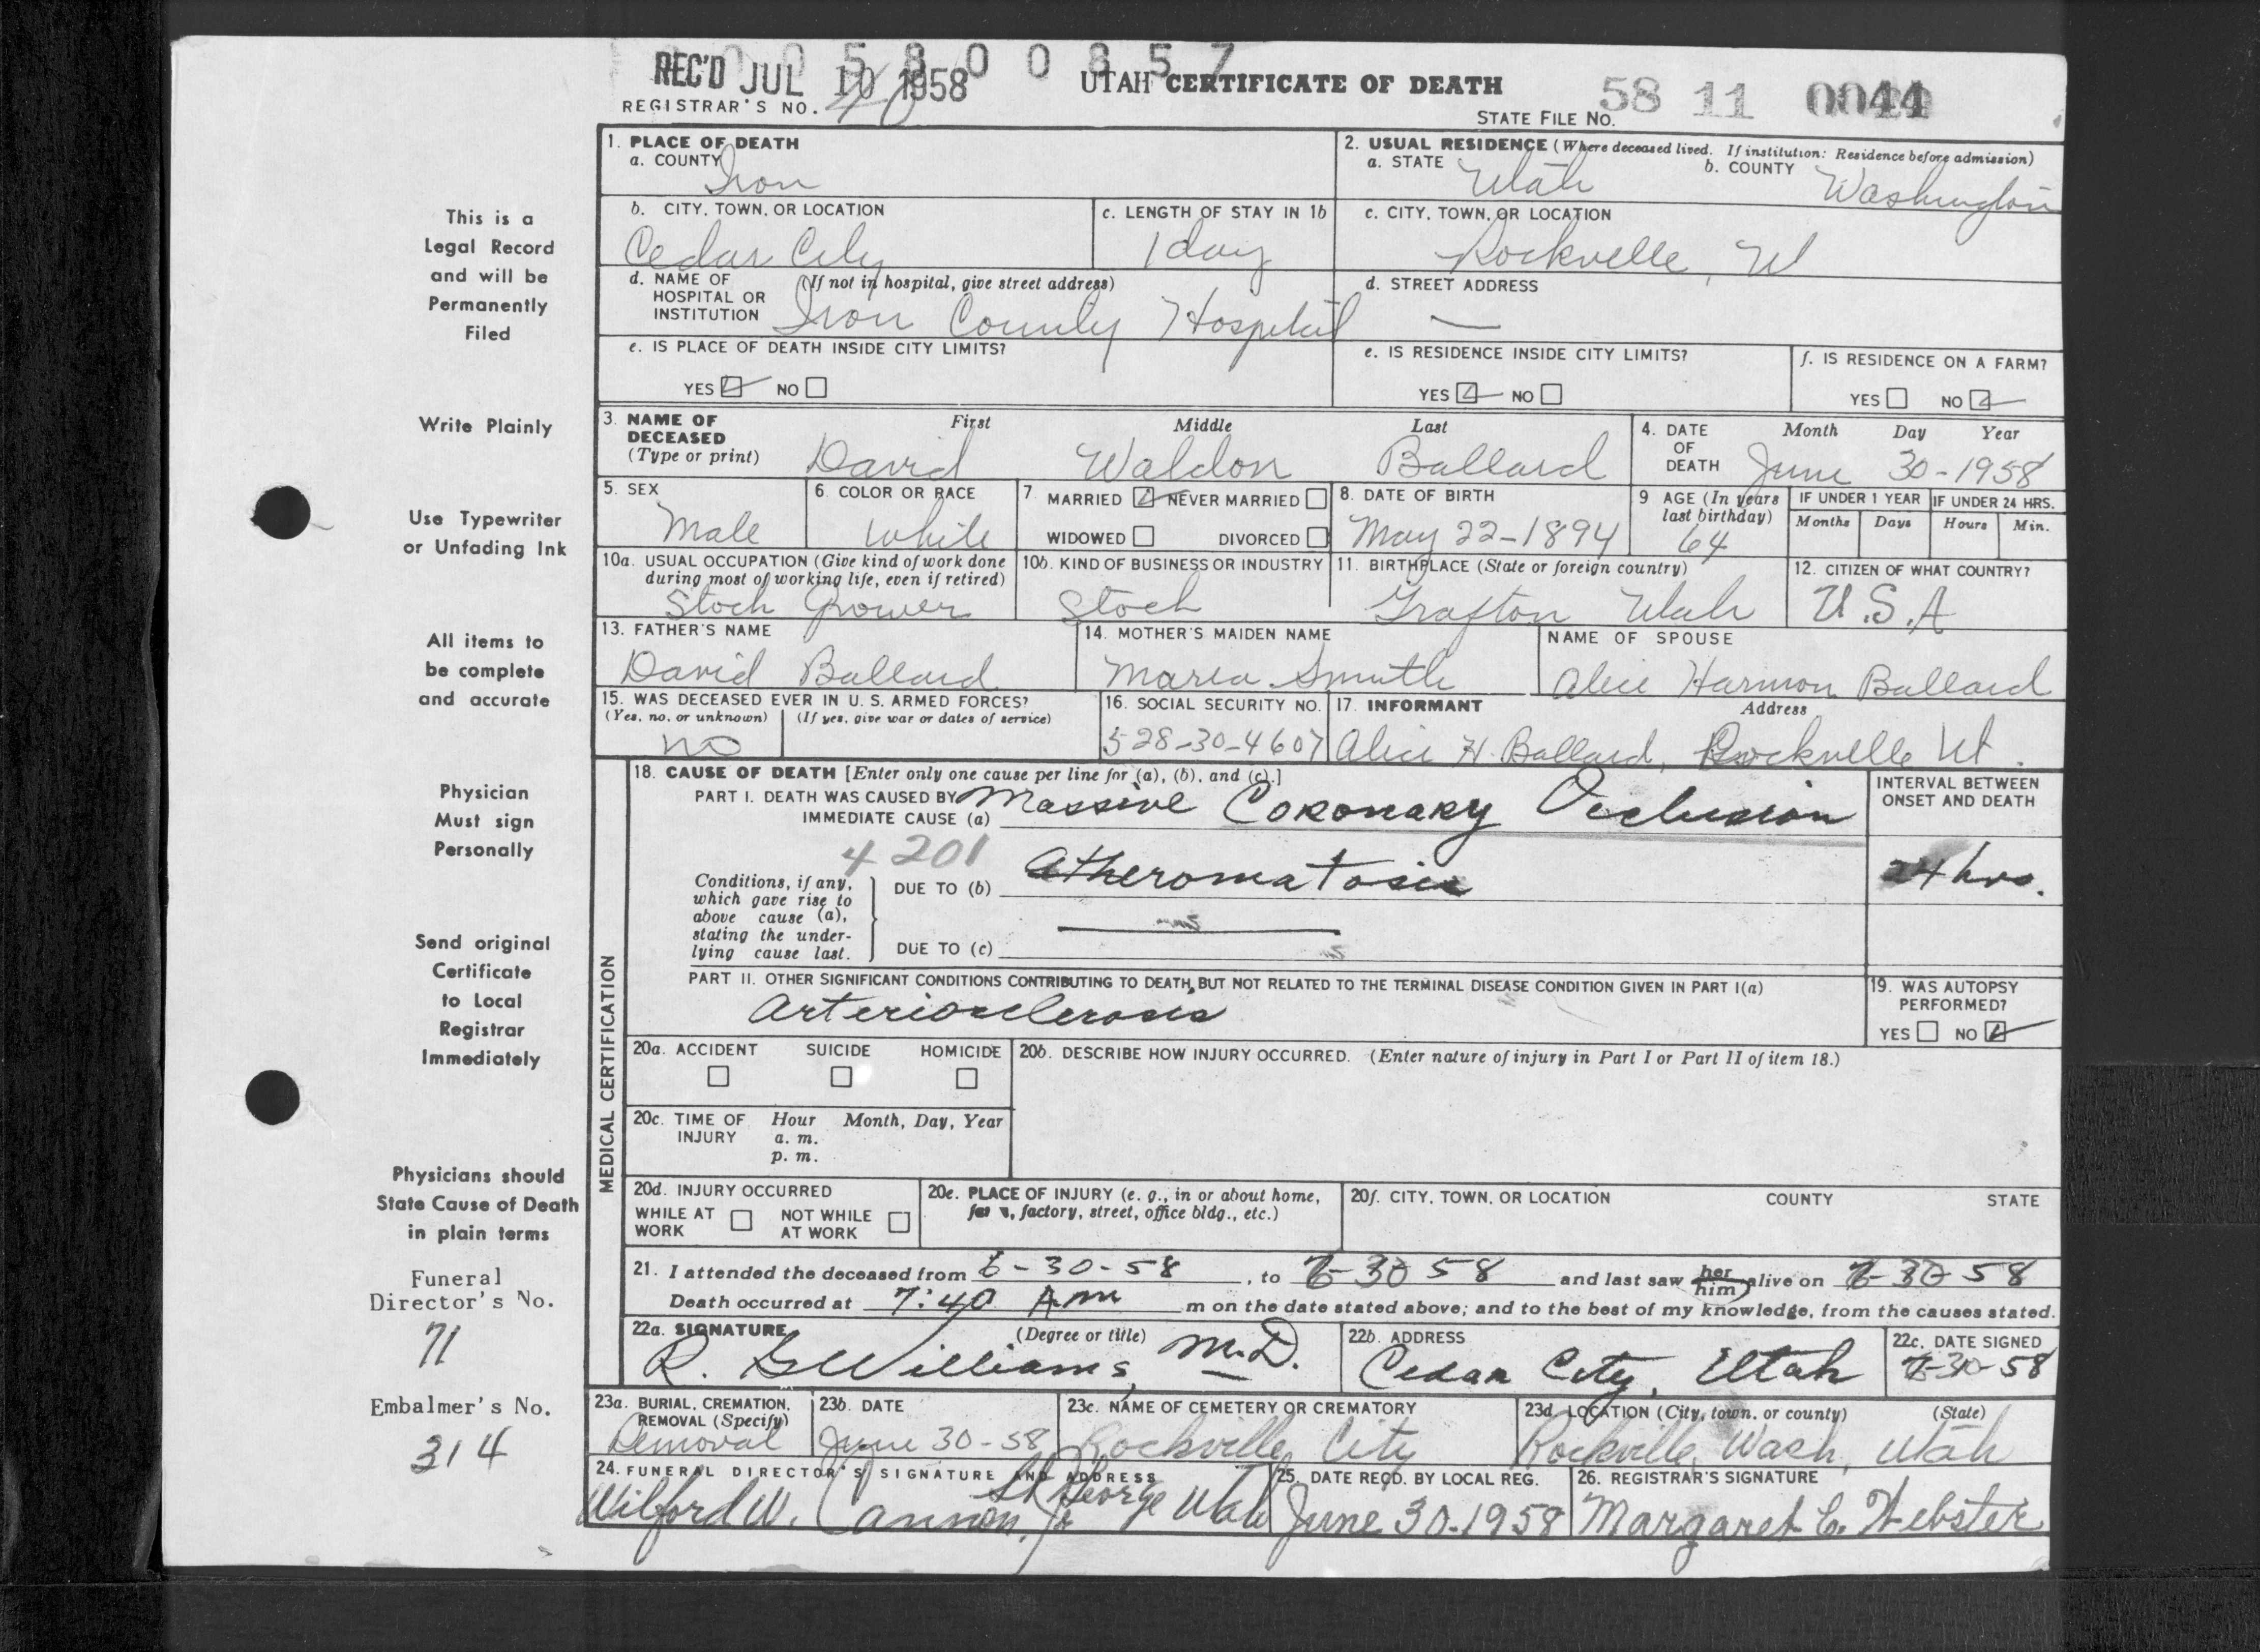 0 0 5 8 0 0 8 5 7
REC'D JUL 10 1958
UTAH CERTIFICATE OF DEATH
REGISTRAR'S NO. 40
STATE FILE NO. 58 11 0044
1. PLACE OF DEATH
a. COUNTY Iron
2. USUAL RESIDENCE (Where deceased lived. If institution: Residence before admission)
a. STATE Utah b. COUNTY Washington
b. CITY, TOWN, OR LOCATION Cedar City
c. LENGTH OF STAY IN 1b 1 day
c. CITY, TOWN, OR LOCATION Rockville, Ut
d. NAME OF HOSPITAL OR INSTITUTION (If not in hospital, give street address) Iron County Hospital
d. STREET ADDRESS —
e. IS PLACE OF DEATH INSIDE CITY LIMITS?
YES ☑ NO ☐
e. IS RESIDENCE INSIDE CITY LIMITS?
YES ☑ NO ☐
f. IS RESIDENCE ON A FARM?
YES ☐ NO ☑
3. NAME OF DECEASED (Type or print) First Middle Last
David Waldon Ballard
4. DATE OF DEATH Month Day Year
June 30-1958
5. SEX Male
6. COLOR OR RACE White
7. MARRIED ☑ NEVER MARRIED ☐
WIDOWED ☐ DIVORCED ☐
8. DATE OF BIRTH May 22-1894
9 AGE (In years last birthday) 64
IF UNDER 1 YEAR Months Days
IF UNDER 24 HRS. Hours Min.
10a. USUAL OCCUPATION (Give kind of work done during most of working life, even if retired)
Stock Grower
10b. KIND OF BUSINESS OR INDUSTRY
Stock
11. BIRTHPLACE (State or foreign country)
Grafton Utah
12. CITIZEN OF WHAT COUNTRY?
U.S.A
13. FATHER'S NAME
David Ballard
14. MOTHER'S MAIDEN NAME
Maria Smith
NAME OF SPOUSE
Alice Harmon Ballard
15. WAS DECEASED EVER IN U. S. ARMED FORCES?
(Yes, no, or unknown) (If yes, give war or dates of service)
no
16. SOCIAL SECURITY NO.
528-30-4607
17. INFORMANT Address
Alice H. Ballard, Rockville Ut.
MEDICAL CERTIFICATION
18. CAUSE OF DEATH [Enter only one cause per line for (a), (b), and (c).]
PART I. DEATH WAS CAUSED BY
IMMEDIATE CAUSE (a) Massive Coronary Occlusion
INTERVAL BETWEEN ONSET AND DEATH
24 hrs.
4201
Conditions, if any, which gave rise to above cause (a), stating the underlying cause last.
DUE TO (b) Atheromatosis
DUE TO (c)
PART II. OTHER SIGNIFICANT CONDITIONS CONTRIBUTING TO DEATH, BUT NOT RELATED TO THE TERMINAL DISEASE CONDITION GIVEN IN PART I(a)
Arteriosclerosis
19. WAS AUTOPSY PERFORMED?
YES ☐ NO ☑
20a. ACCIDENT SUICIDE HOMICIDE
☐ ☐ ☐
20b. DESCRIBE HOW INJURY OCCURRED. (Enter nature of injury in Part I or Part II of item 18.)
20c. TIME OF INJURY Hour Month, Day, Year
a. m.
p. m.
20d. INJURY OCCURRED
WHILE AT WORK ☐ NOT WHILE AT WORK ☐
20e. PLACE OF INJURY (e. g., in or about home, farm, factory, street, office bldg., etc.)
20f. CITY, TOWN, OR LOCATION COUNTY STATE
21. I attended the deceased from 6-30-58, to 6-30 58 and last saw her him alive on 6-30-58
Death occurred at 7:40 A.m m on the date stated above; and to the best of my knowledge, from the causes stated.
22a. SIGNATURE (Degree or title)
R. G Williams, M.D.
22b. ADDRESS
Cedar City, Utah
22c. DATE SIGNED
6-30-58
23a. BURIAL, CREMATION, REMOVAL (Specify)
Removal
23b. DATE
June 30-58
23c. NAME OF CEMETERY OR CREMATORY
Rockville City
23d. LOCATION (City, town, or county) (State)
Rockville, Wash, Utah
24. FUNERAL DIRECTOR'S SIGNATURE AND ADDRESS
Wilford W. Cannon, Jr St George Utah
25. DATE RECD. BY LOCAL REG.
June 30-1958
26. REGISTRAR'S SIGNATURE
Margaret C. Webster
This is a
Legal Record
and will be
Permanently
Filed
Write Plainly
Use Typewriter
or Unfading Ink
All items to
be complete
and accurate
Physician
Must sign
Personally
Send original
Certificate
to Local
Registrar
Immediately
Physicians should
State Cause of Death
in plain terms
Funeral
Director's No.
71
Embalmer's No.
314